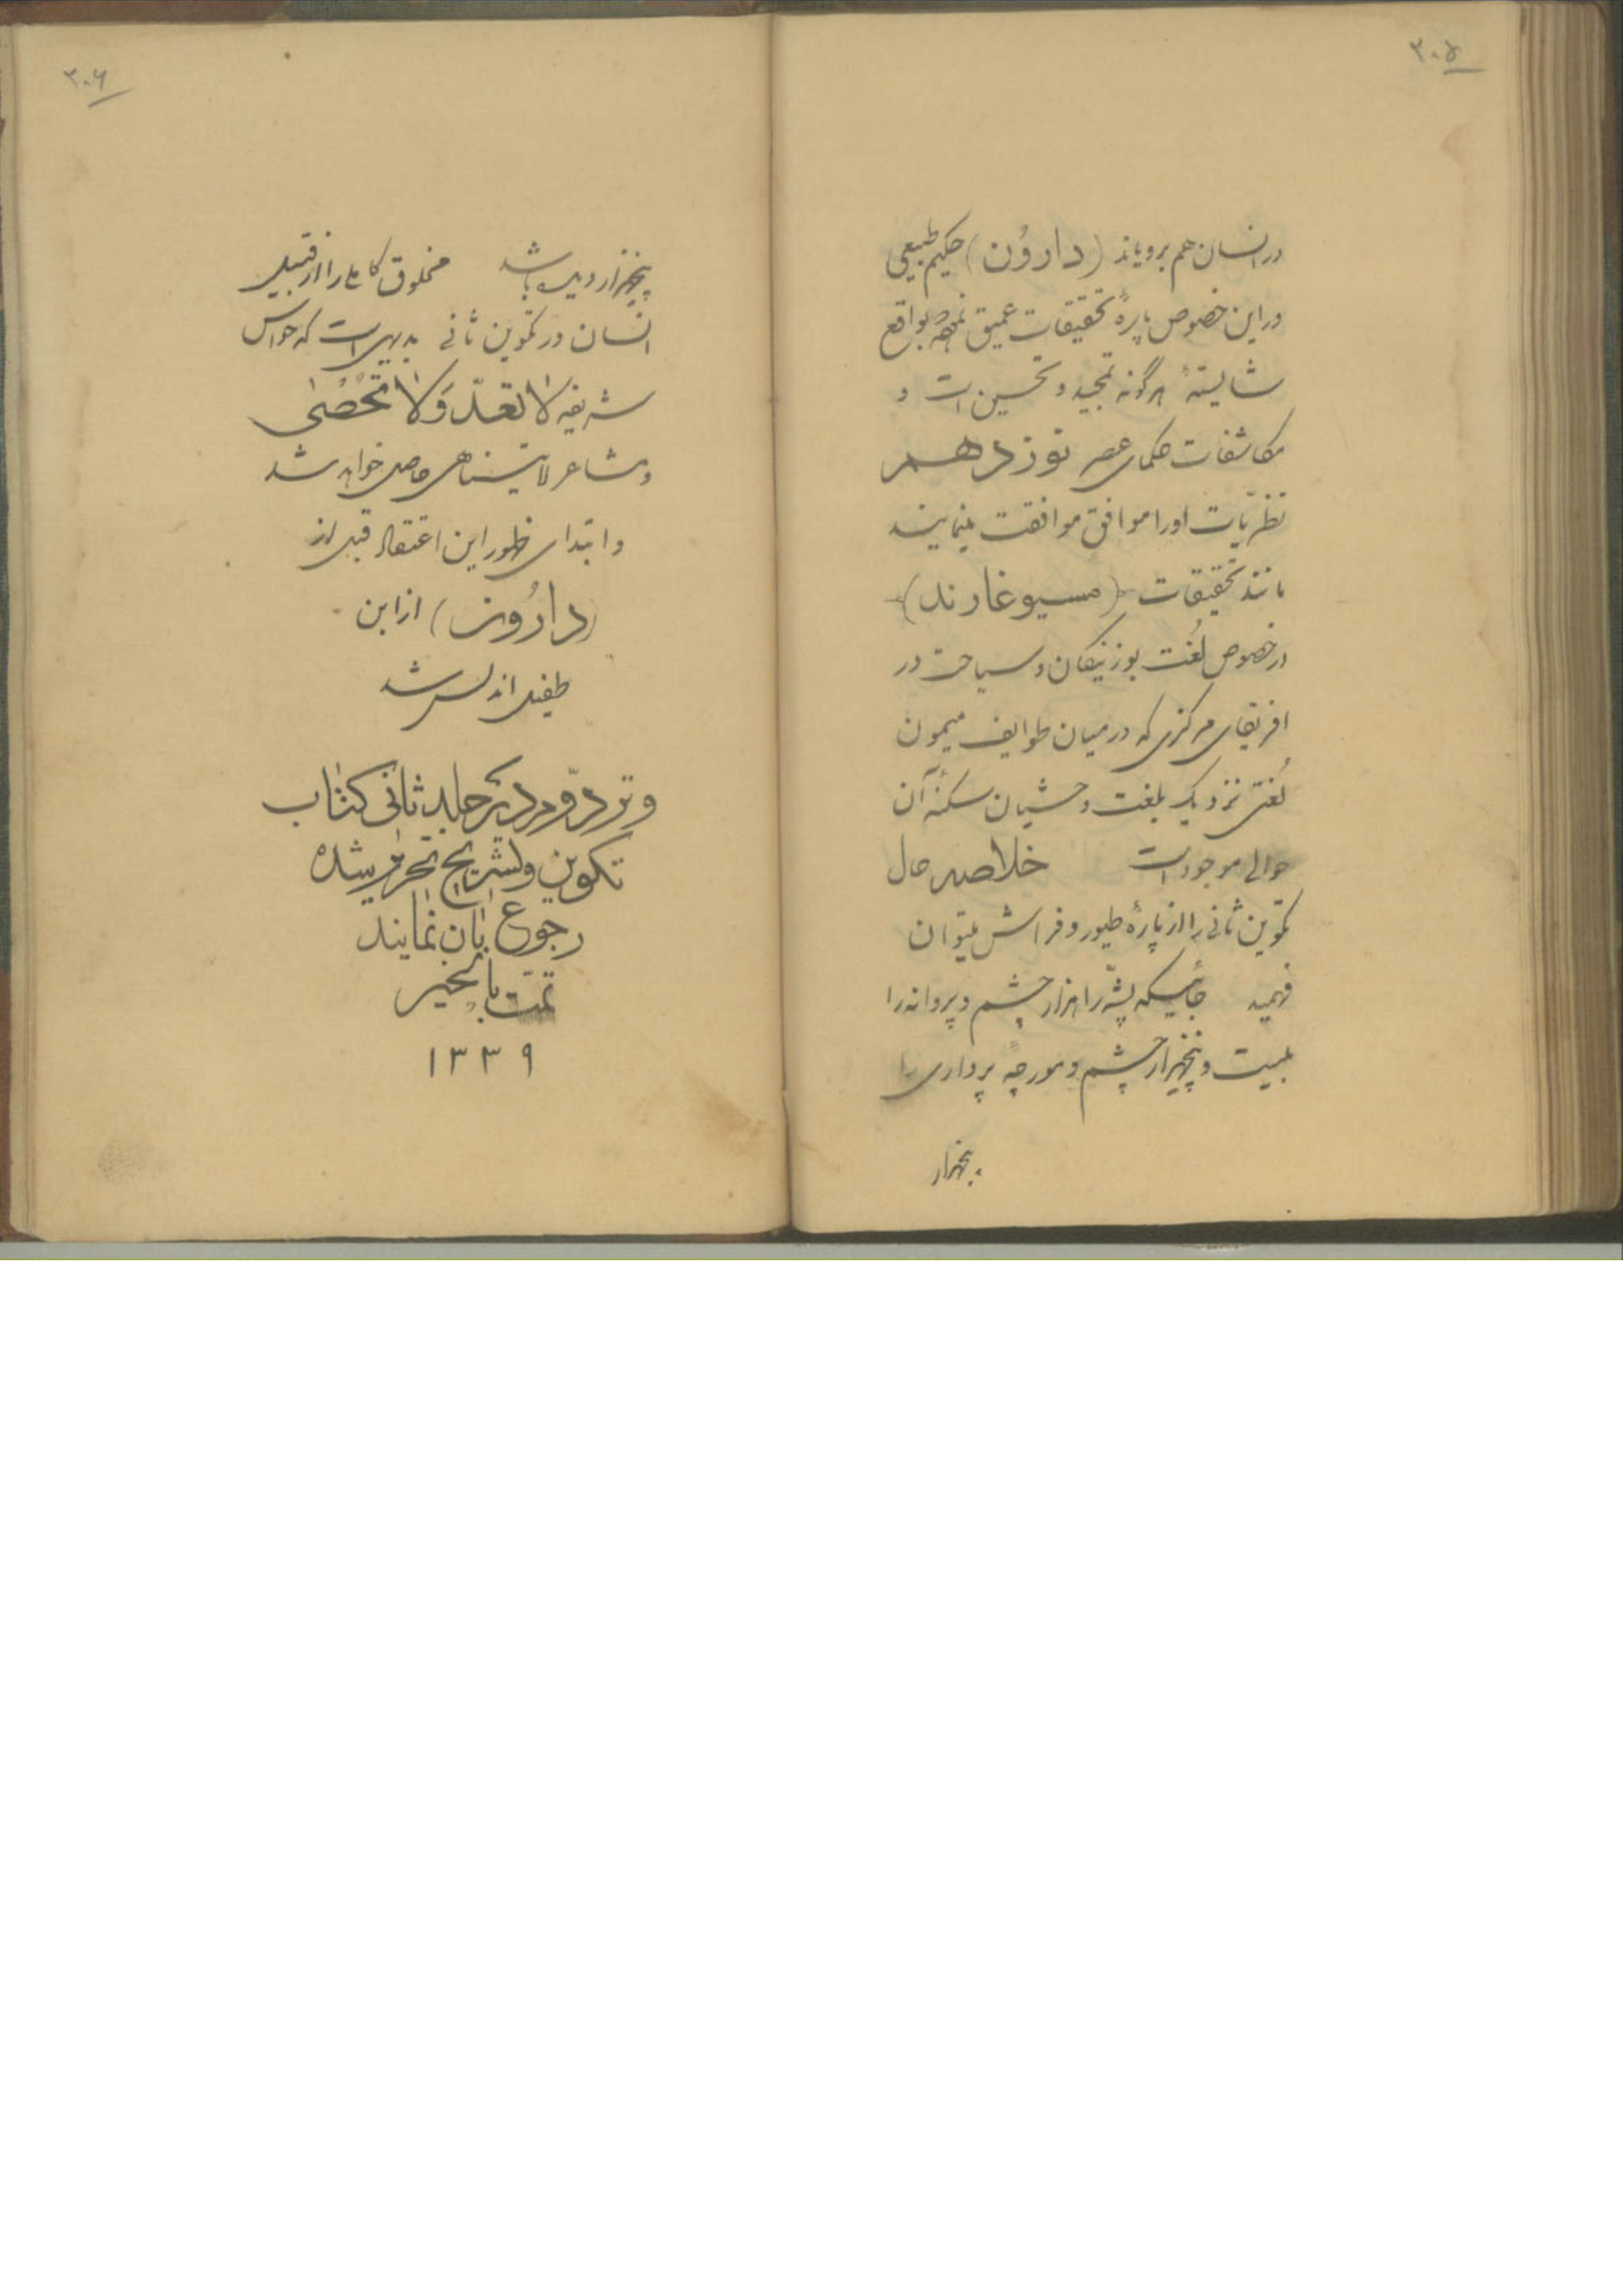 ۳۰۵
در انسان هم برویاند (دارْوُن) حکیم طبیعی
در این خصوص پارهٔ تحقیقات عمیق نموده بواقع
شایستهٔ هرگونه تمجید و تحسین است و
مکاشفات حکمای عصر نوزدهم
نظریّات اورا موافق موافقت مینمایند
مانند تحقیقات (مسیو غارند)
در خصوص لُغت بوزنیکان و سیاحت در
افریقای مرکزی که در میان طوایف میمون
لُغتی نزدیک بلغت وحشیان سکنهٔ آن
حوالی موجود است خلاصه حال
تکوین ثانی را از پارهٔ طیور و فراش میتوان
فهمید جائیکه پشّه را هزار چشم و پروانه را
بیست و پنجهزار چشم و مورچهٔ پرداری را
پنجهزار
۳۰۶
پنجهزار دیده باشد مخلوق کاملی را از قبیل
انسان در تکوین ثانی بدیهی است که حواس
شریفه لا تُعَدّ وَلا تُحْصٰی
و مشاعر لایتناهی حاصل خواهد شد
و ابتدای ظهور این اعتقاد قبل از
(دارْوُن) از ابن
طفیل اندلسی شد
و در جلد ثانی کتاب
تکوین و تشریح تحریر شده
رجوع بآن نمایند
تمّت بالخیر
۱۳۳۹